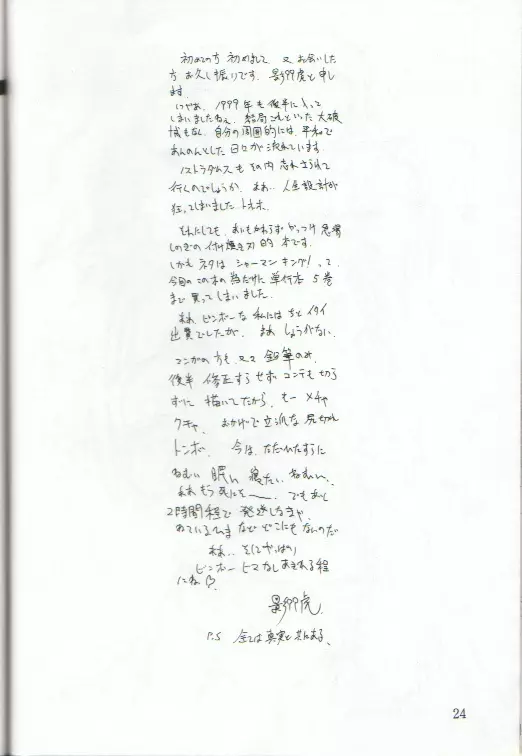 初めての方 初めまして 又 お会いした
方 お久し振りです. 影夘虎と申し
ます.
いやぁ. 1999年も後半に入って
しまいましたねぇ. 結局 これといった 大破
局もなし. 自分の周囲的には. 平和で
あんのんとした 日々が 流れています.
ノストラダムスも その内 忘れ去られて
行くのでしょうか. まぁ.. 人生設計が
狂ってしまいました. トホホ.
それにしても. あいもかわらず やっつけ
しのぎの 付け焼き刃 的 本です.
しかも ネタは シャーマンキング!って.
今回の この本の為だけに 単行本 5巻
まで 買ってしまいました.
まぁ ビンボーな 私には ちと イタイ
出費でしたが. まぁ しょうがない.
マンガの方も 又々 鉛筆のみ.
後半 修正すらせず コンテも切ら
ずに 描いてたから. もー メチャ
クチャ. おかげで立派な 尻切れ
トンボ. 今は. ただひたすらに
ねむい 眠い 寝たい ねむい..
まぁ もう 死にそー. でもあと
2時間程で 発送しなきゃ.
ねているひま など どこにもないのだ
まぁ.. そしてやっぱり
ビンボー ヒマなし あきれる程
にね♡.
影夘虎.
P.S 全ては 真実と共にある.
24